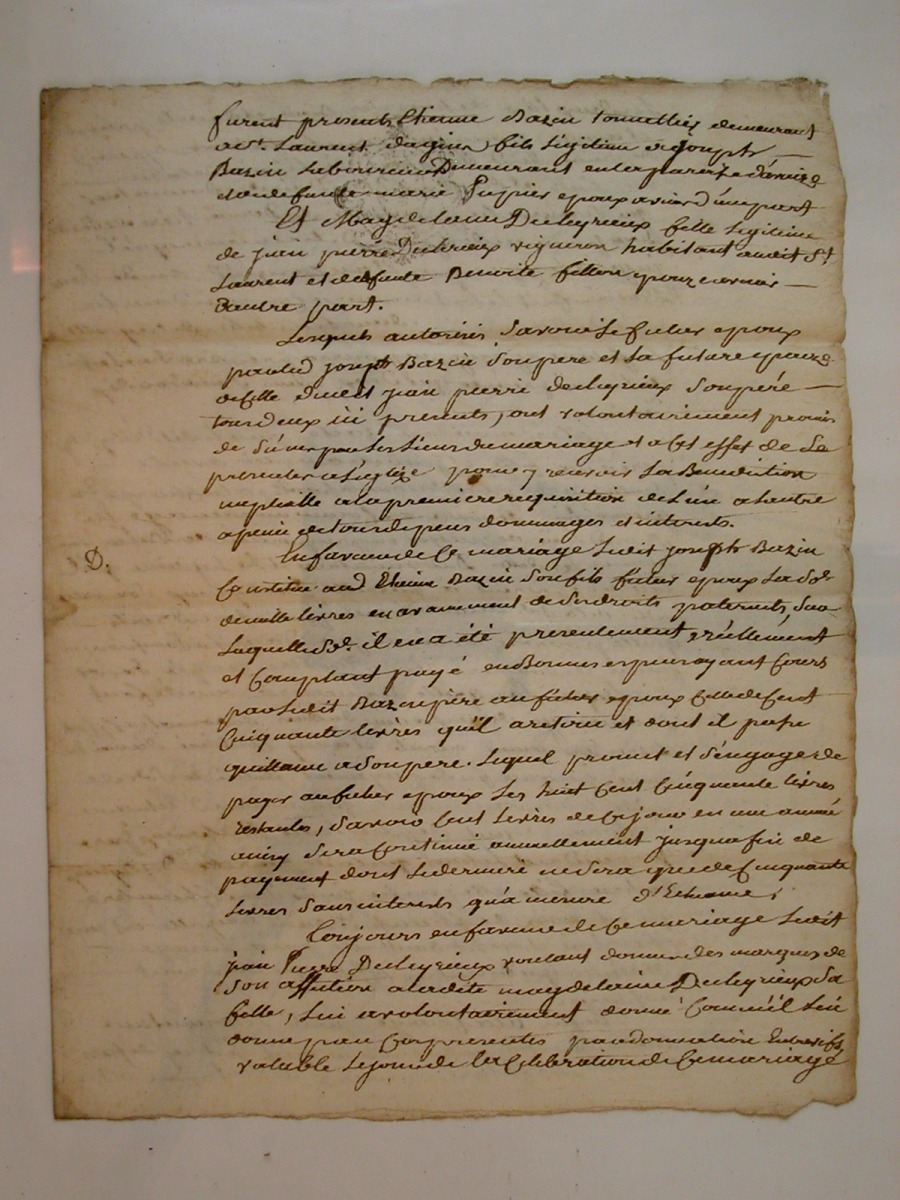 furent presents Etienne Bazin tonnellier demeurant
a st. Laurent d'agino fils legitime de joseph
Bazin laboureur Demeurant en la paroisse
et de defunte marie Pupier epoux avenir d'une part
Et Magdelaine Deleyrieux fille legitime
de jean pierre Deleyrieux vigneron habitant audit St.
Laurent et de defunte Benoite fillon epouze avenir
d'autre part.
Lesquels autorisés, Savoir Le futur epoux
par led joseph Bazin Son pere et La future epouze
de celle dudit jean pierre deleyrieux Son pere
tous deux ici presents, ont volontairement promis
de S'unir par Les Liens du mariage et a Cet effet de Se
presenter a L'eglize pour y recevoir La Benediction
nuptialle a la premiere requisition de L'un a L'autre
a peine de tous depens dommages et interets.
En faveur de Ce mariage Ledit joseph Bazin
D.
Constitue aud Etienne Bazin Son fils futur epoux La Sode
de mille livres en avancement de Ses droits paternels, Sur
Laquelle Sode. il en a été presentement, réellement
et Comptant payé en Bonnes especes ayant Cours
par Ledit Bazin pere au futur epoux Celle de Cent
Cinquante livres qu'il a retiré et dont il passe
quittance a Son pere. Lequel promet et S'engage de
payer au futur epoux Les huit Cent Cinquante livres
restantes, Savoir Cent Livres de Ce jour en une année
ainsy Sera Continué annuellement jusqua fin de
payement dont Le dernier ne Sera que de Cinquante
Livres Sans interets qu'a mesure d'Echeance;
Toujours en faveur de Ce mariage Ledit
jean Pierre Deleyrieux voulant donner des marques de
Son affection a ladite magdelaine Deleyrieux Sa
fille, Lui a volontairement donné Comme il Lui
donne par Ces presentes par donnation Entrevifs
valable Le jour de la Celebration de Ce mariage